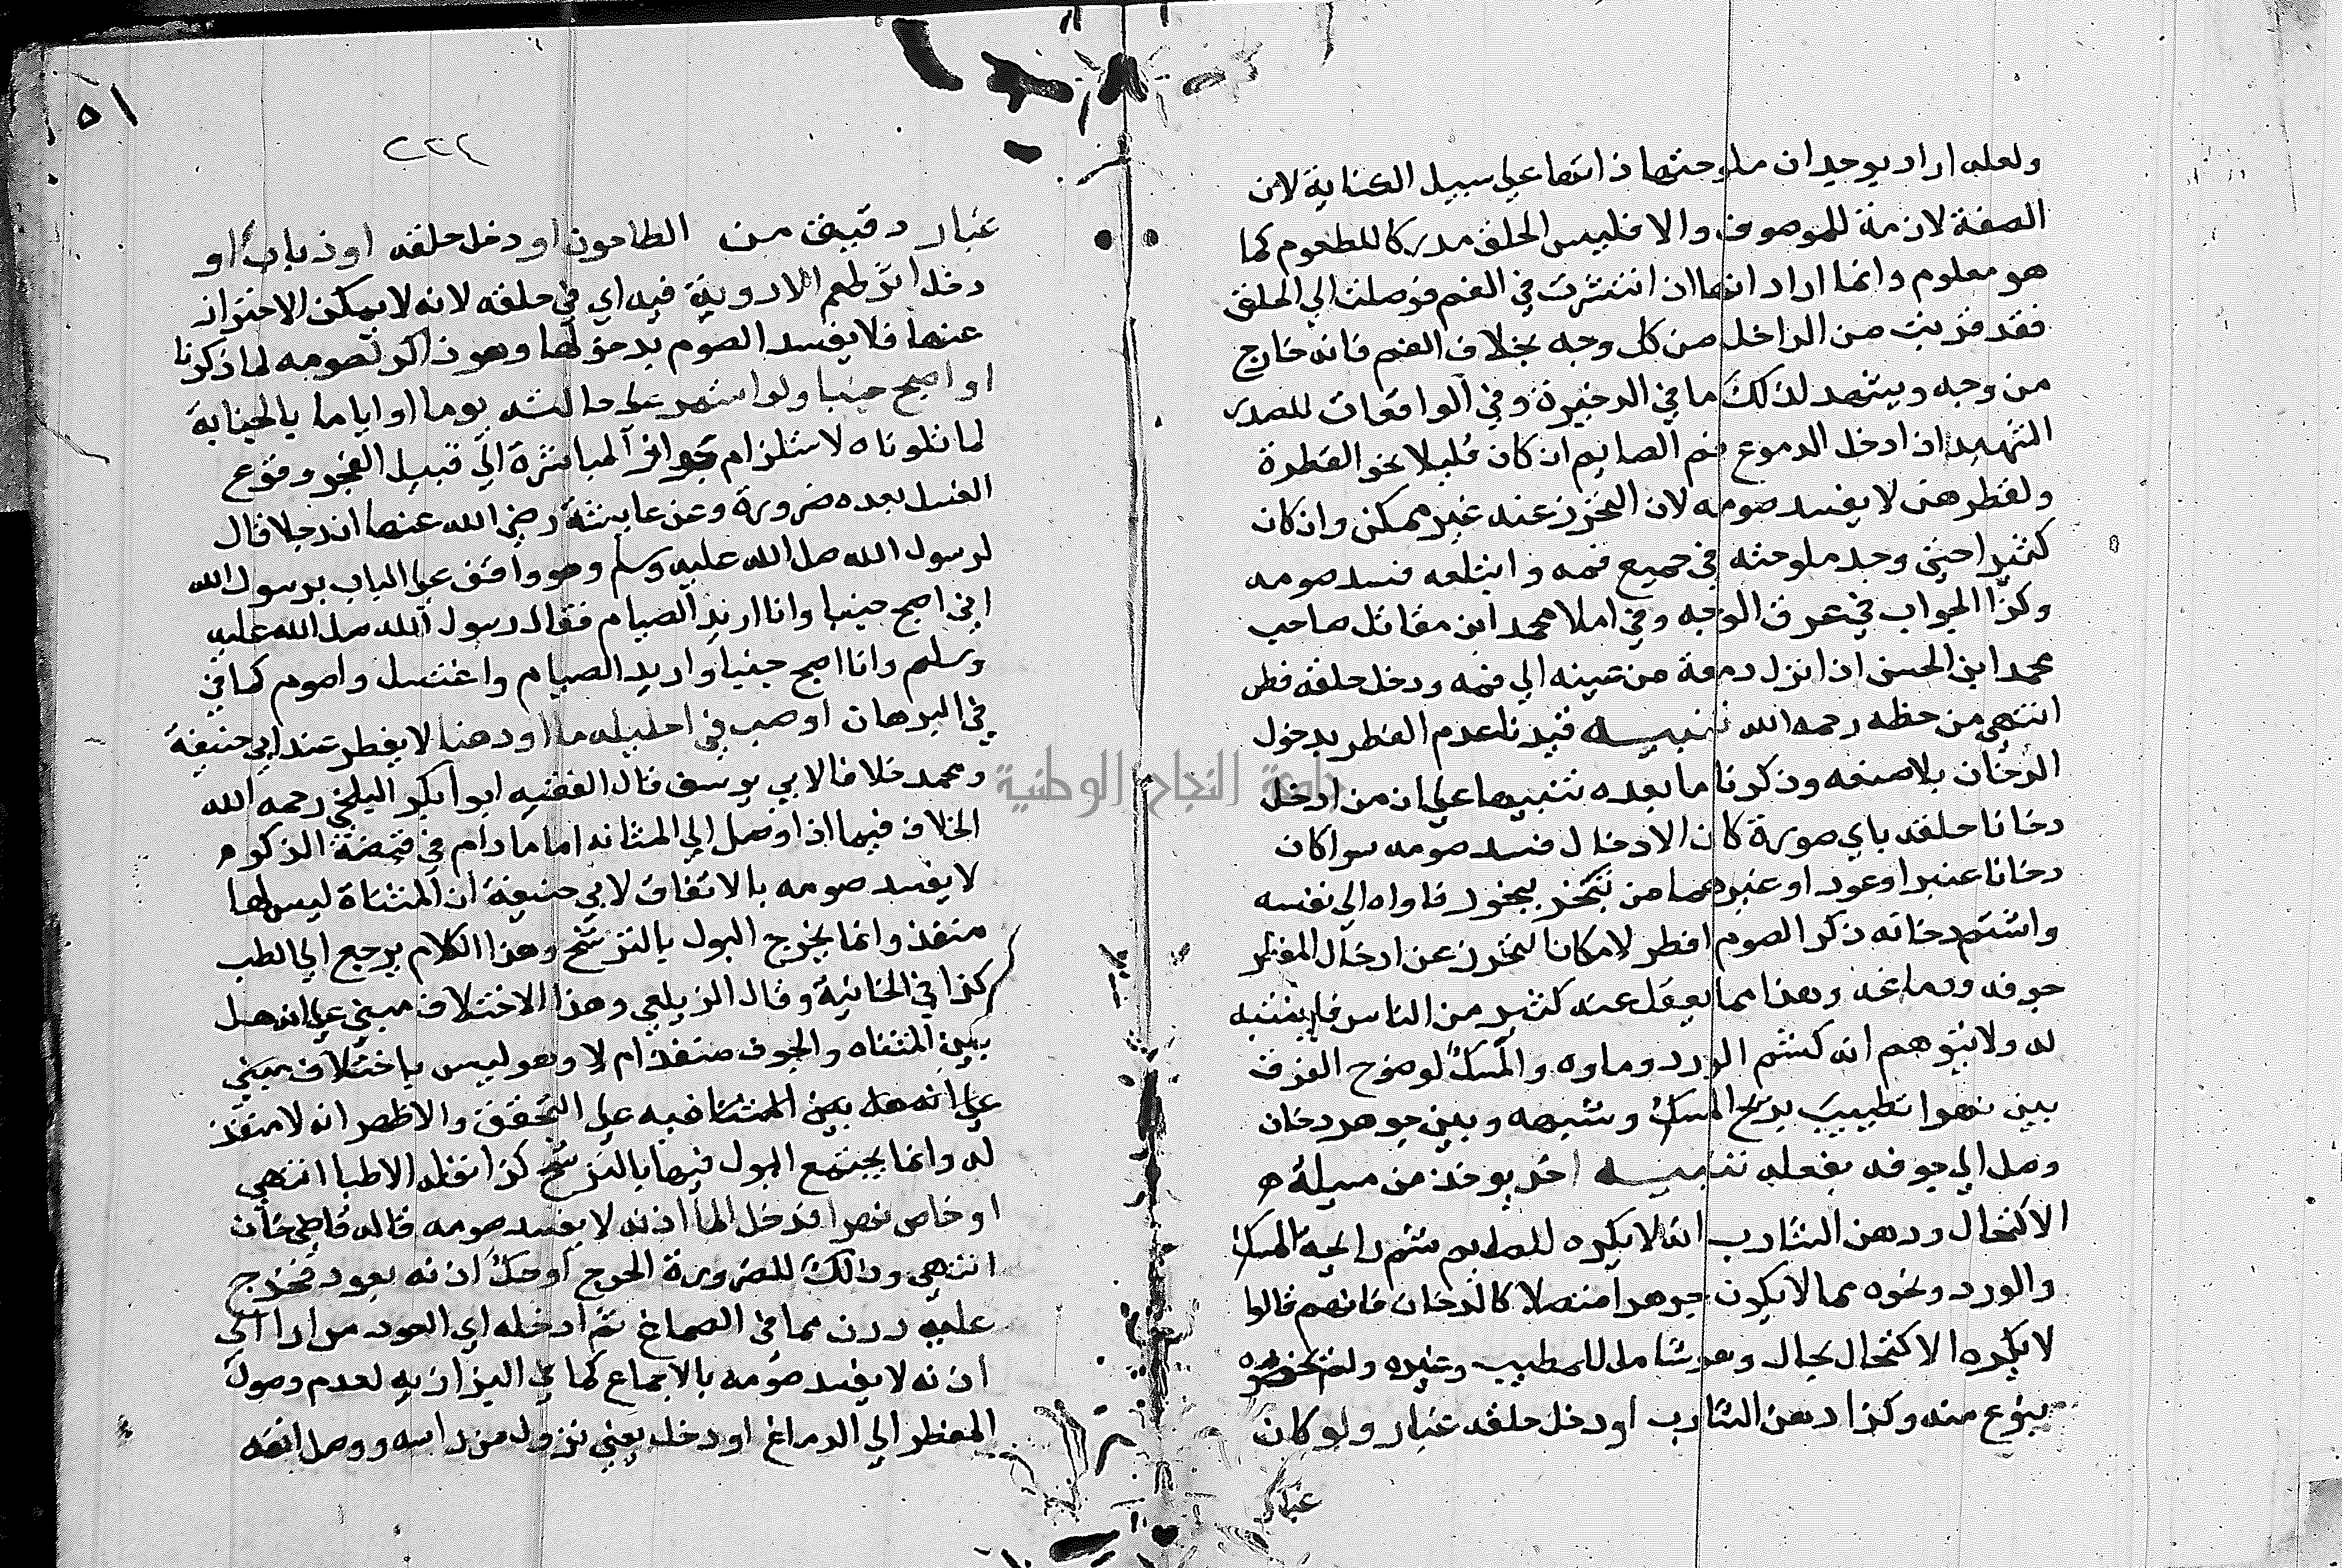 ولعله اراد بوجدان ملوحتها ذاتها علي سبيل الكناية لان
الصفة لازمة للموصوف والا فليس الحلق مدركا للطعوم كما
هو معلوم وانما اراد انها اذا انتشرت في الفم فوصلت الي الحلق
فقد قربت من الداخل من كل وجه بخلاف الفم فانه خارج
من وجه ويشهد لذلك ما في الدخيرة وفي الواقعات للصدر
الشهيد اذا دخل الدموع فم الصايم ان كان قليلا نحو القطرة
ولقطرهن لا يفسد صومه لان التحرز عنه غير ممكن وان كان
كثيرا حتي وجد ملوحته في جميع فمه وابتلعه فسد صومه
وكذا الجواب في عرق الوجه وفي املا محمد ابن مقاتل صاحب
محمد ابن الحسن اذا نزل دمعة من عينه الي فمه ودخل حلقه فطر
انتهي من حظه رحمه الله تنبيه قيدنا عدم الفطر بدخول
الدخان بلا صنعه وذكرنا ما بعده تنبيها علي ان من ادخل
دخانا حلقه باي صورة كان الادخال فسد صومه سوا كان
دخانا عنبرا وعود او غيرهما من تبخر ببخور فاواه الي نفسه
واشتم دخانه ذكر الصوم افطر لامكان التحرز عن ادخال المفطر
جوفه ودماغه وهذا مما يغفل عنه كثير من الناس فلينتبه
له ولا يتوهم انه كشم الورد وماوه والمسك لوضوح الفرق
بين هوا تطيب بريح المسك وشبهه وبين جوهر دخان
وصل الي جوفه بفعله تنبيه اخر يوخذ من مسيلة
الاكتحال ودهن الشارب انه لا يكره للصايم شم رايحة المسك
والورد ونحوه مما لا يكون جوهرا متصلا كالدخان فانهم قالوا
لا يكره الاكتحال بحال وهو شامل للمطيب وغيره ولم يخصوه
بنوع منه وكذا دهن الشارب او دخل حلقه غبار ولو كان
غبار
٥١
٢٢٢
غبار دقيق من الطاحون او دخل حلقه اوذباب او
دخل اثر طعم الادوية فيه اي في حلقه لانه لا يمكن الاحتراز
عنها فلا يفسد الصوم بدخولها وهو ذاكر لصومه لما ذكرنا
او اصبح جنبا ولو استمر علي حالته يوما او اياما بالجنابة
لما تلوناه لاستلزام جواز المباشرة الي قبيل الفجر وقوع
الغسل بعده ضرورة وعن عايشة رضي الله عنها ان رجلا قال
لرسول الله صلي الله عليه وسلم وهو واقف علي الباب يرسول الله
اني اصبح جنبا وانا اريد الصيام فقال رسول الله صلي الله عليه
وسلم وانا اصبح جنبا واريد الصيام واغتسل واصوم كما في
في البرهان او صب في احليله ما او دهنا لا يفطر عند ابي حنيفة
ومحمد خلافا لابي يوسف قال الفقيه ابو ابكر البلخي رحمه الله
الخلاف فيما اذا وصل الي المثانه اما ما دام في قصبة الذكر
لا يفسد صومه بالاتفاق لابي حنيفة ان المثناة ليس لها
منفذ وانما يخرج البول بالترشح وهذا الكلام يرجع الي الطب
كذا في الخانية وقال الزيلعي وهذا الاختلاف مبني علي انه هل
بين المثناه والجوف منفذ ام لا وهو ليس باختلاف مبني
علي انه هل بين المثنا فيه علي التحقق والاظهر انه لا منفذ
له وانما يجتمع البول فيها بالترشح كذا نقله الاطبا انتهي
او خاض نهرا فدخل الما اذنه لا يفسد صومه قاله قاضي خان
انتهي وذلك للضرورة الحرج او حك اذنه بعود فخرج
عليه درن مما في الصماغ ثم ادخله اي العود مرارا الي
اذنه لا يفسد صومه بالاجماع كما في البزازيه لعدم وصول
المفطر الي الدماغ او دخل يعني نزول من راسه ووصل انفه
جامعة النجاح الوطنية